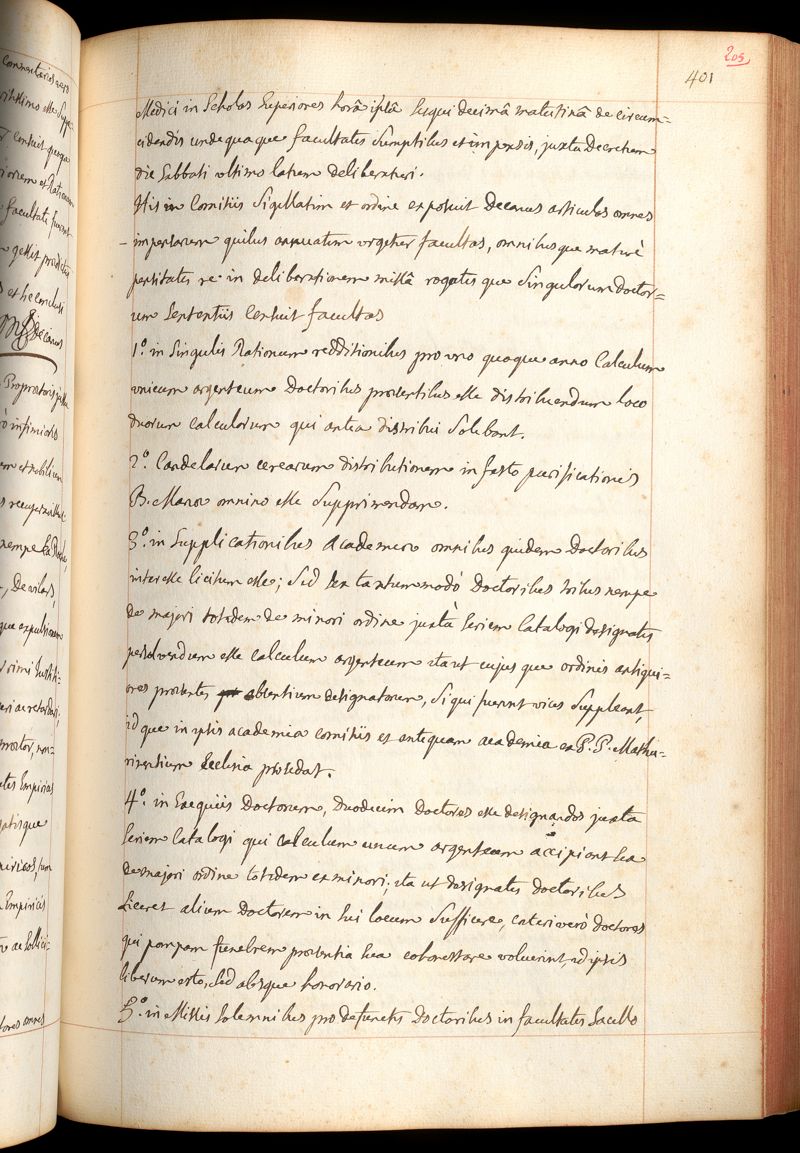 205
401
Medici in Scholas Superiores horâ ipsâ sesqui decimâ matutinâ de circum=
cidendis undequaque facultatis sumptibus et impensis, juxta Decretum
die Sabbati ultimo latum deliberaturi.
His in Comitiis sigillatim et ordine exposuit Decanus articulos omnes
impensarum quibus annuatim urgetur facultas, omnibusque maturè
perpensis re in deliberationem missâ rogatisque Singulorum doctor=
um Sententiis Censuit facultas
1.º in Singulis Rationum redditionibus pro uno quoque anno Calculum
unicum argenteum Doctoribus praesentibus esse distribuendum loco
duorum calculorum qui antea distribui solebant.
2.º Candelarum cerearum distributionem in festo purificationis
B. Mariae omnino esse Supprimendam.
3.º in Supplicationibus Academiae omnibus quidem Doctoribus
interesse licitum esse; sed sex tantummodò Doctoribus tribus nempe
de majori totidem de minori ordine juxtà seriem Catalogi designatis
persolvendum esse calculum argenteum ita ut cujusque ordinis antiqui=
ores praesentes absentium designatorum, si qui fuerint vices suppleant,
idque in ipsis academiae comitiis et antequam academia ex P. P. Mathu=
rinensium Ecclesia procedat.
4.º in Exequiis Doctorum, Duodecim Doctores esse designandos juxta
seriem Catalogi qui calculum unum argenteum accipiant sex
de majori ordine totidem ex minori; ita ut designatis doctoribus
liceret alium Doctorem in sui locum sufficere, caeteri verò doctores
qui pompam funebrem praesentia sua cohonestare voluerint, id ipsis
liberum esto, sed absque honorario.
5.º in Missis Solemnibus pro defunctis Doctoribus in facultatis Sacello